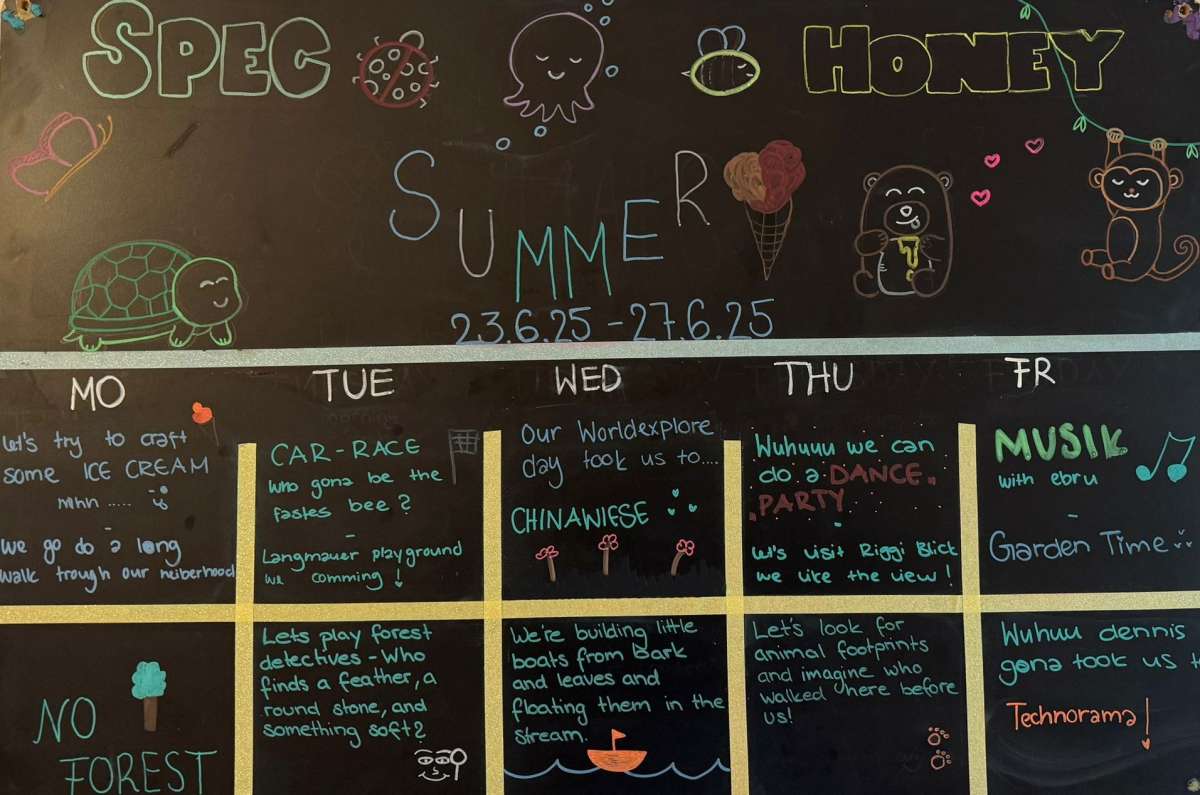 SPEC HONEY
SUMMER
23.6.25 - 27.6.25
MO
TUE
WED
THU
FR
Let's try to craft
some ICE CREAM
Mhn .....
-
We go do a long
walk trough our neiberhood
CAR-RACE
who gona be the
fastes bee?
-
Langmauer playground
we comming!
Our Worldexplore
day took us to....
CHINAWIESE
Wuhuuu we can
do a DANCE
PARTY
-
Let's visit Riggi Blick
we like the view!
MUSIK
with ebru
-
Garden Time
NO
FOREST
Lets play forest
detectives - Who
finds a feather, a
round stone, and
something soft?
We're building little
boats from bark
and leaves and
floating them in the
stream.
Let's look for
animal footprints
and imagine who
walked here before
us!
Wuhuu dennis
gona took us t
Technorama!